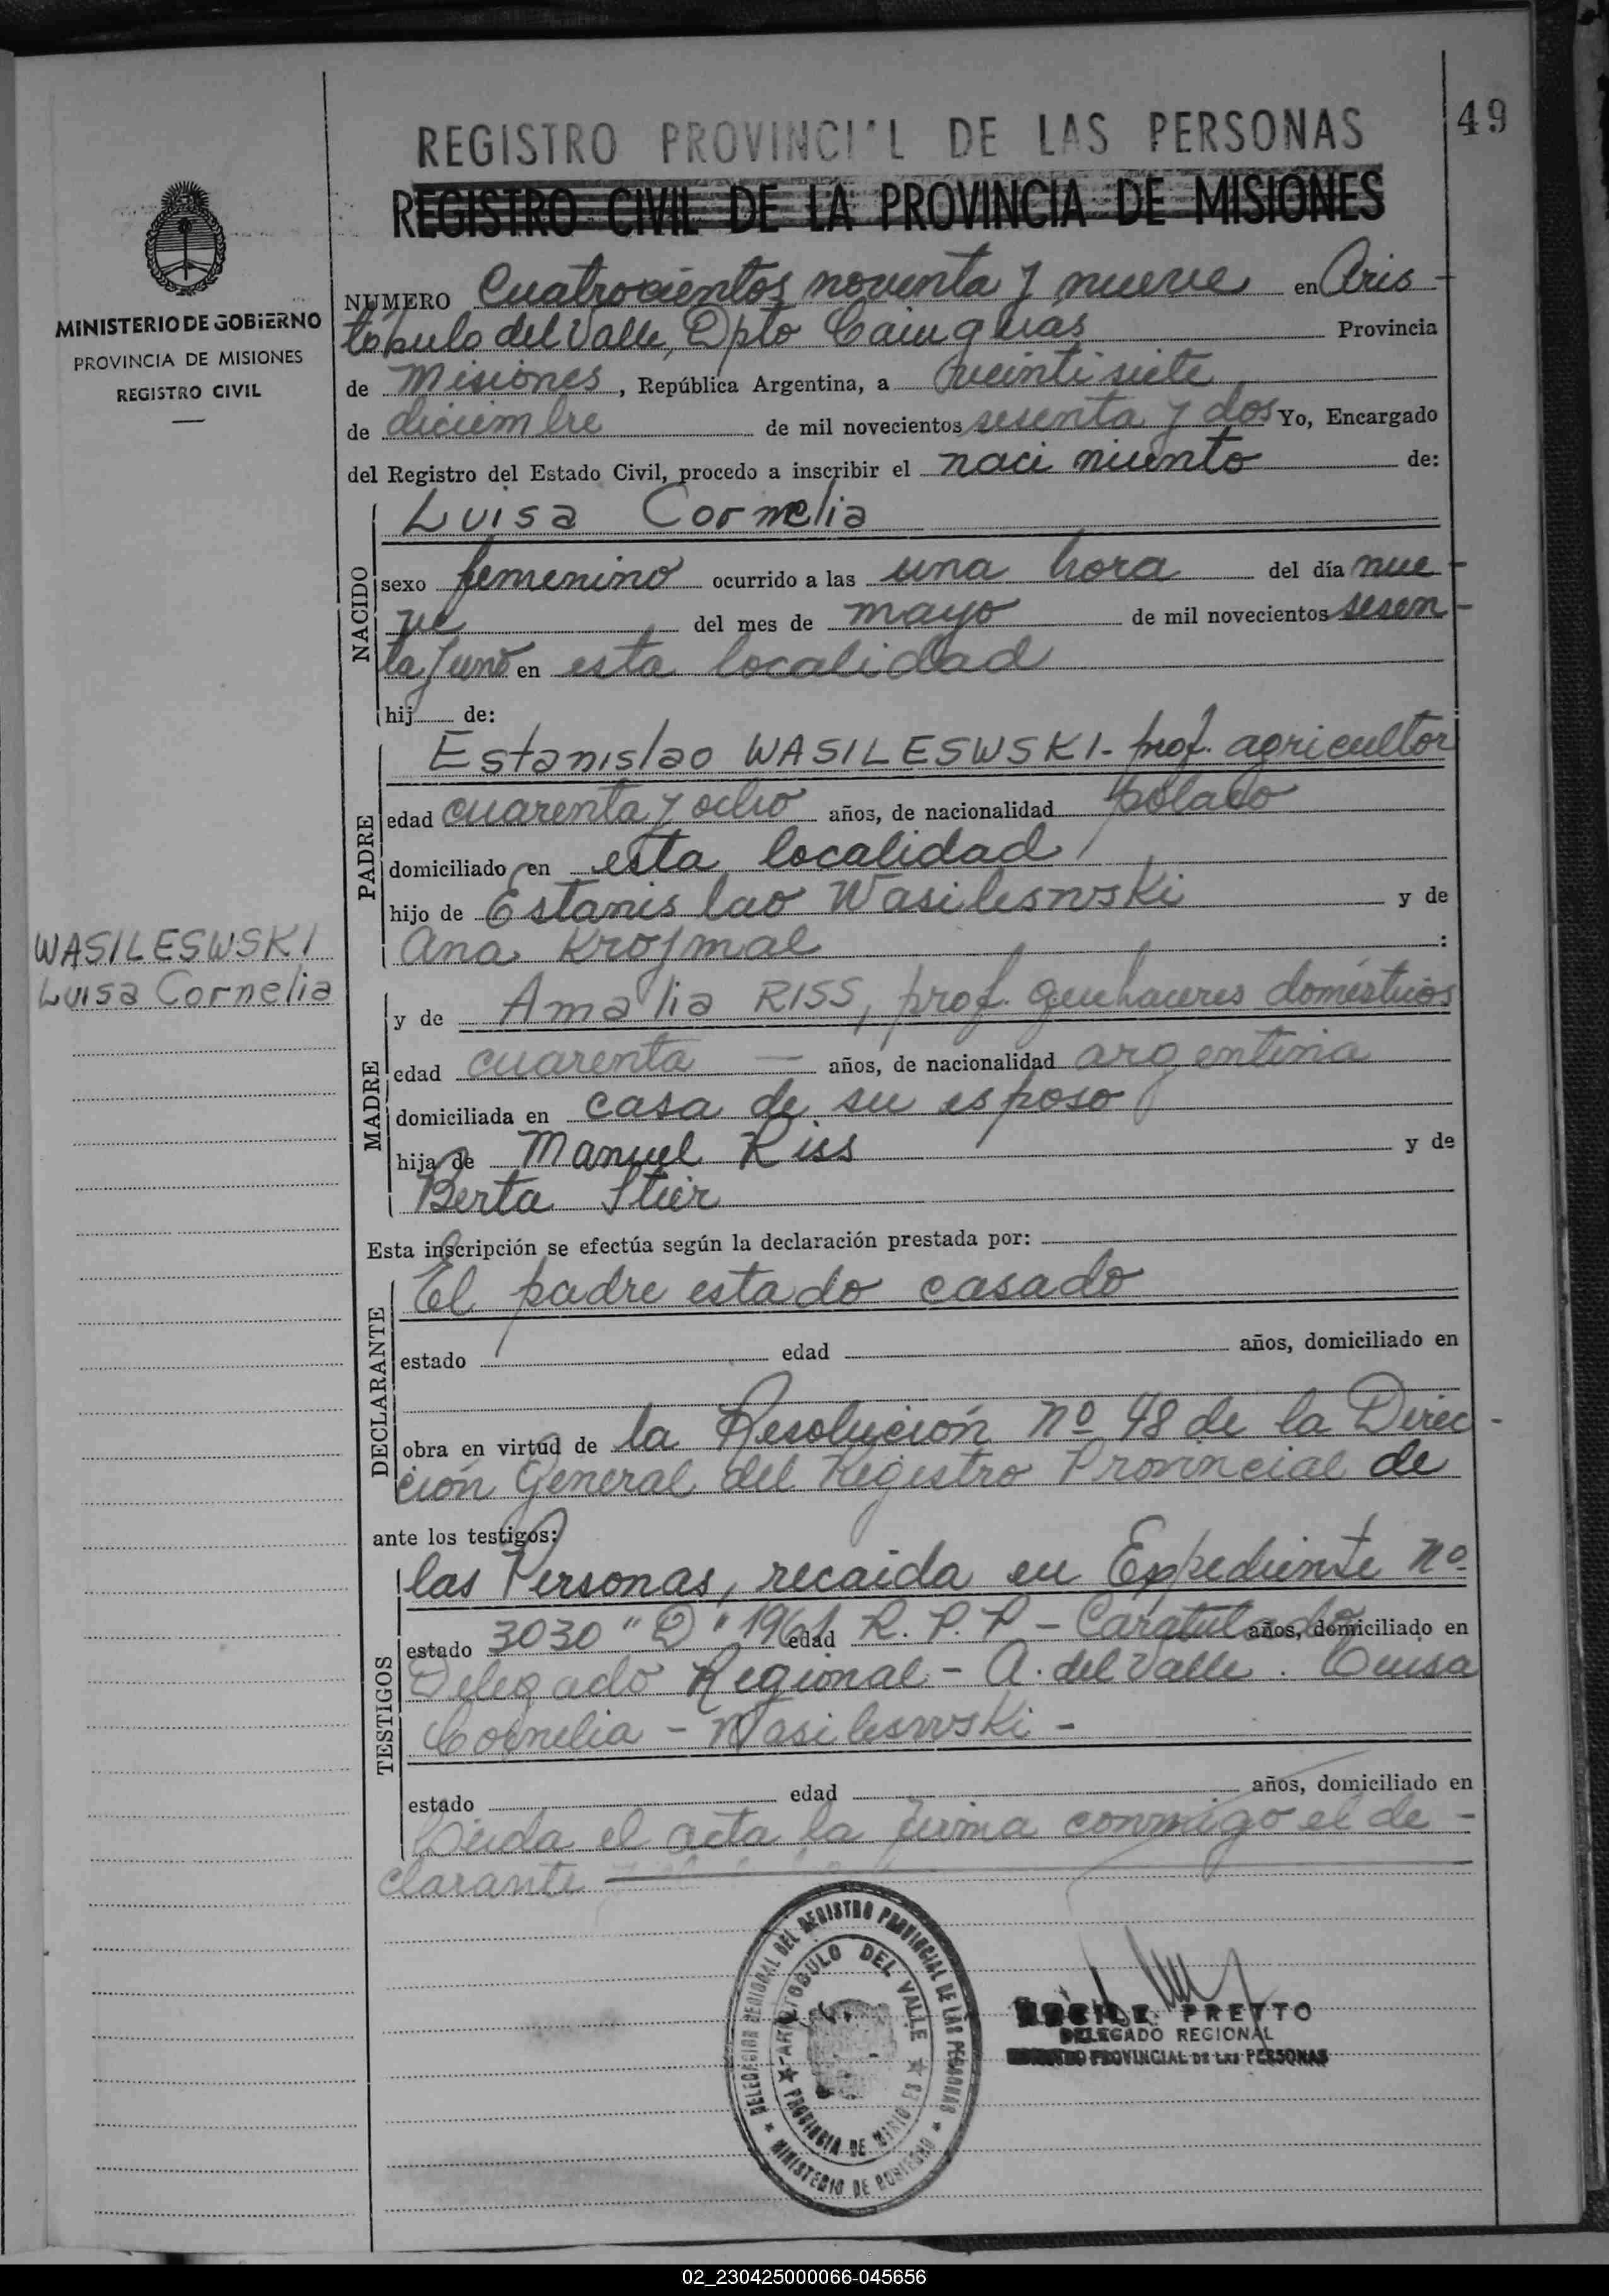 49
REGISTRO PROVINCI'L DE LAS PERSONAS
REGISTRO CIVIL DE LA PROVINCIA DE MISIONES
MINISTERIO DE GOBIERNO
PROVINCIA DE MISIONES
REGISTRO CIVIL
NUMERO Cuatrocientos noventa y nueve en Aris-
tóbulo del Valle, Dpto Cainguás Provincia
de Misiones, República Argentina, a veintisiete
de diciembre de mil novecientos sesenta y dos Yo, Encargado
del Registro del Estado Civil, procedo a inscribir el nacimiento de:
NACIDO
Luisa Cornelia
sexo femenino ocurrido a las una hora del día nue-
ve del mes de mayo de mil novecientos sesen-
ta y uno en esta localidad
hij de:
PADRE
Estanislao WASILESWSKI - prof. agricultor
edad cuarenta y ocho años, de nacionalidad polaco
domiciliado en esta localidad
hijo de Estanislao Wasileswski y de
Ana Krojmal :
WASILESWSKI
Luisa Cornelia
MADRE
y de Amalia RISS, prof. quehaceres domésticos
edad cuarenta — años, de nacionalidad argentina
domiciliada en casa de su esposo
hija de Manuel Riss y de
Berta Stier
Esta inscripción se efectúa según la declaración prestada por:
DECLARANTE
El padre estado casado
estado edad años, domiciliado en
obra en virtud de la Resolución nº 48 de la Direc-
ción General del Registro Provincial de
ante los testigos:
TESTIGOS
las Personas, recaida en Expediente nº
estado 3030 "D" 1961 edad R. P. P - Caratulado años, domiciliado en
Delegado Regional - A. del Valle. Luisa
Cornelia - Wasileswski -
estado edad años, domiciliado en
Leida el acta la firma conmigo el de-
clarante
DELEGACION REGIONAL DEL REGISTRO PROVINCIAL DE LAS PERSONAS
ARISTOBULO DEL VALLE
PROVINCIA DE MISIONES
MINISTERIO DE GOBIERNO
PRETTO
DELEGADO REGIONAL
PROVINCIAL DE LAS PERSONAS
02_230425000066-045656